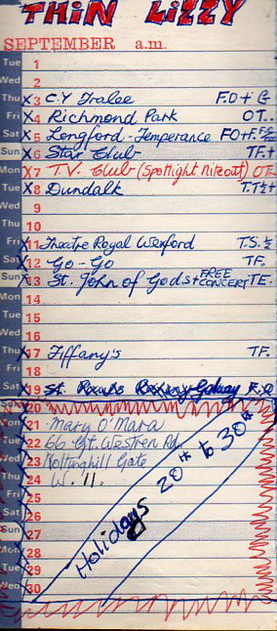 THIN LIZZY
SEPTEMBER a.m.
Tue 1
Wed 2
Thu X 3 C.Y Tralee F.O +
Fri X 4 Richmond Park O T..
Sat X 5 Longford - Temperance FO+F.
Sun X 6 Star Club TF.+
Mon X 7 T.V. Club (Spotlight Niteout) OF
Tue X 8 Dundalk T.T½+
Wed 9
Thu 10
Fri X 11 Theatre Royal Wexford T.S.½
Sat X 12 Go-Go TF.
Sun X 13 St. John of Gods + FREE CONCERT. TE.
Mon 14
Tue 15
Wed 16
Thu X 17 Tiffany's TF.
Fri 18
Sat X 19 St. Galway
Sun 20
Mon 21 Mary O'Mara
Tue 22 66 Gt. Western Rd.
Wed 23 Nottinghill Gate
Thu 24 W. 11.
Fri 25
Sat 26
Sun 27
Mon 28
Tue 29
Wed 30
Holidays 20th to 30th